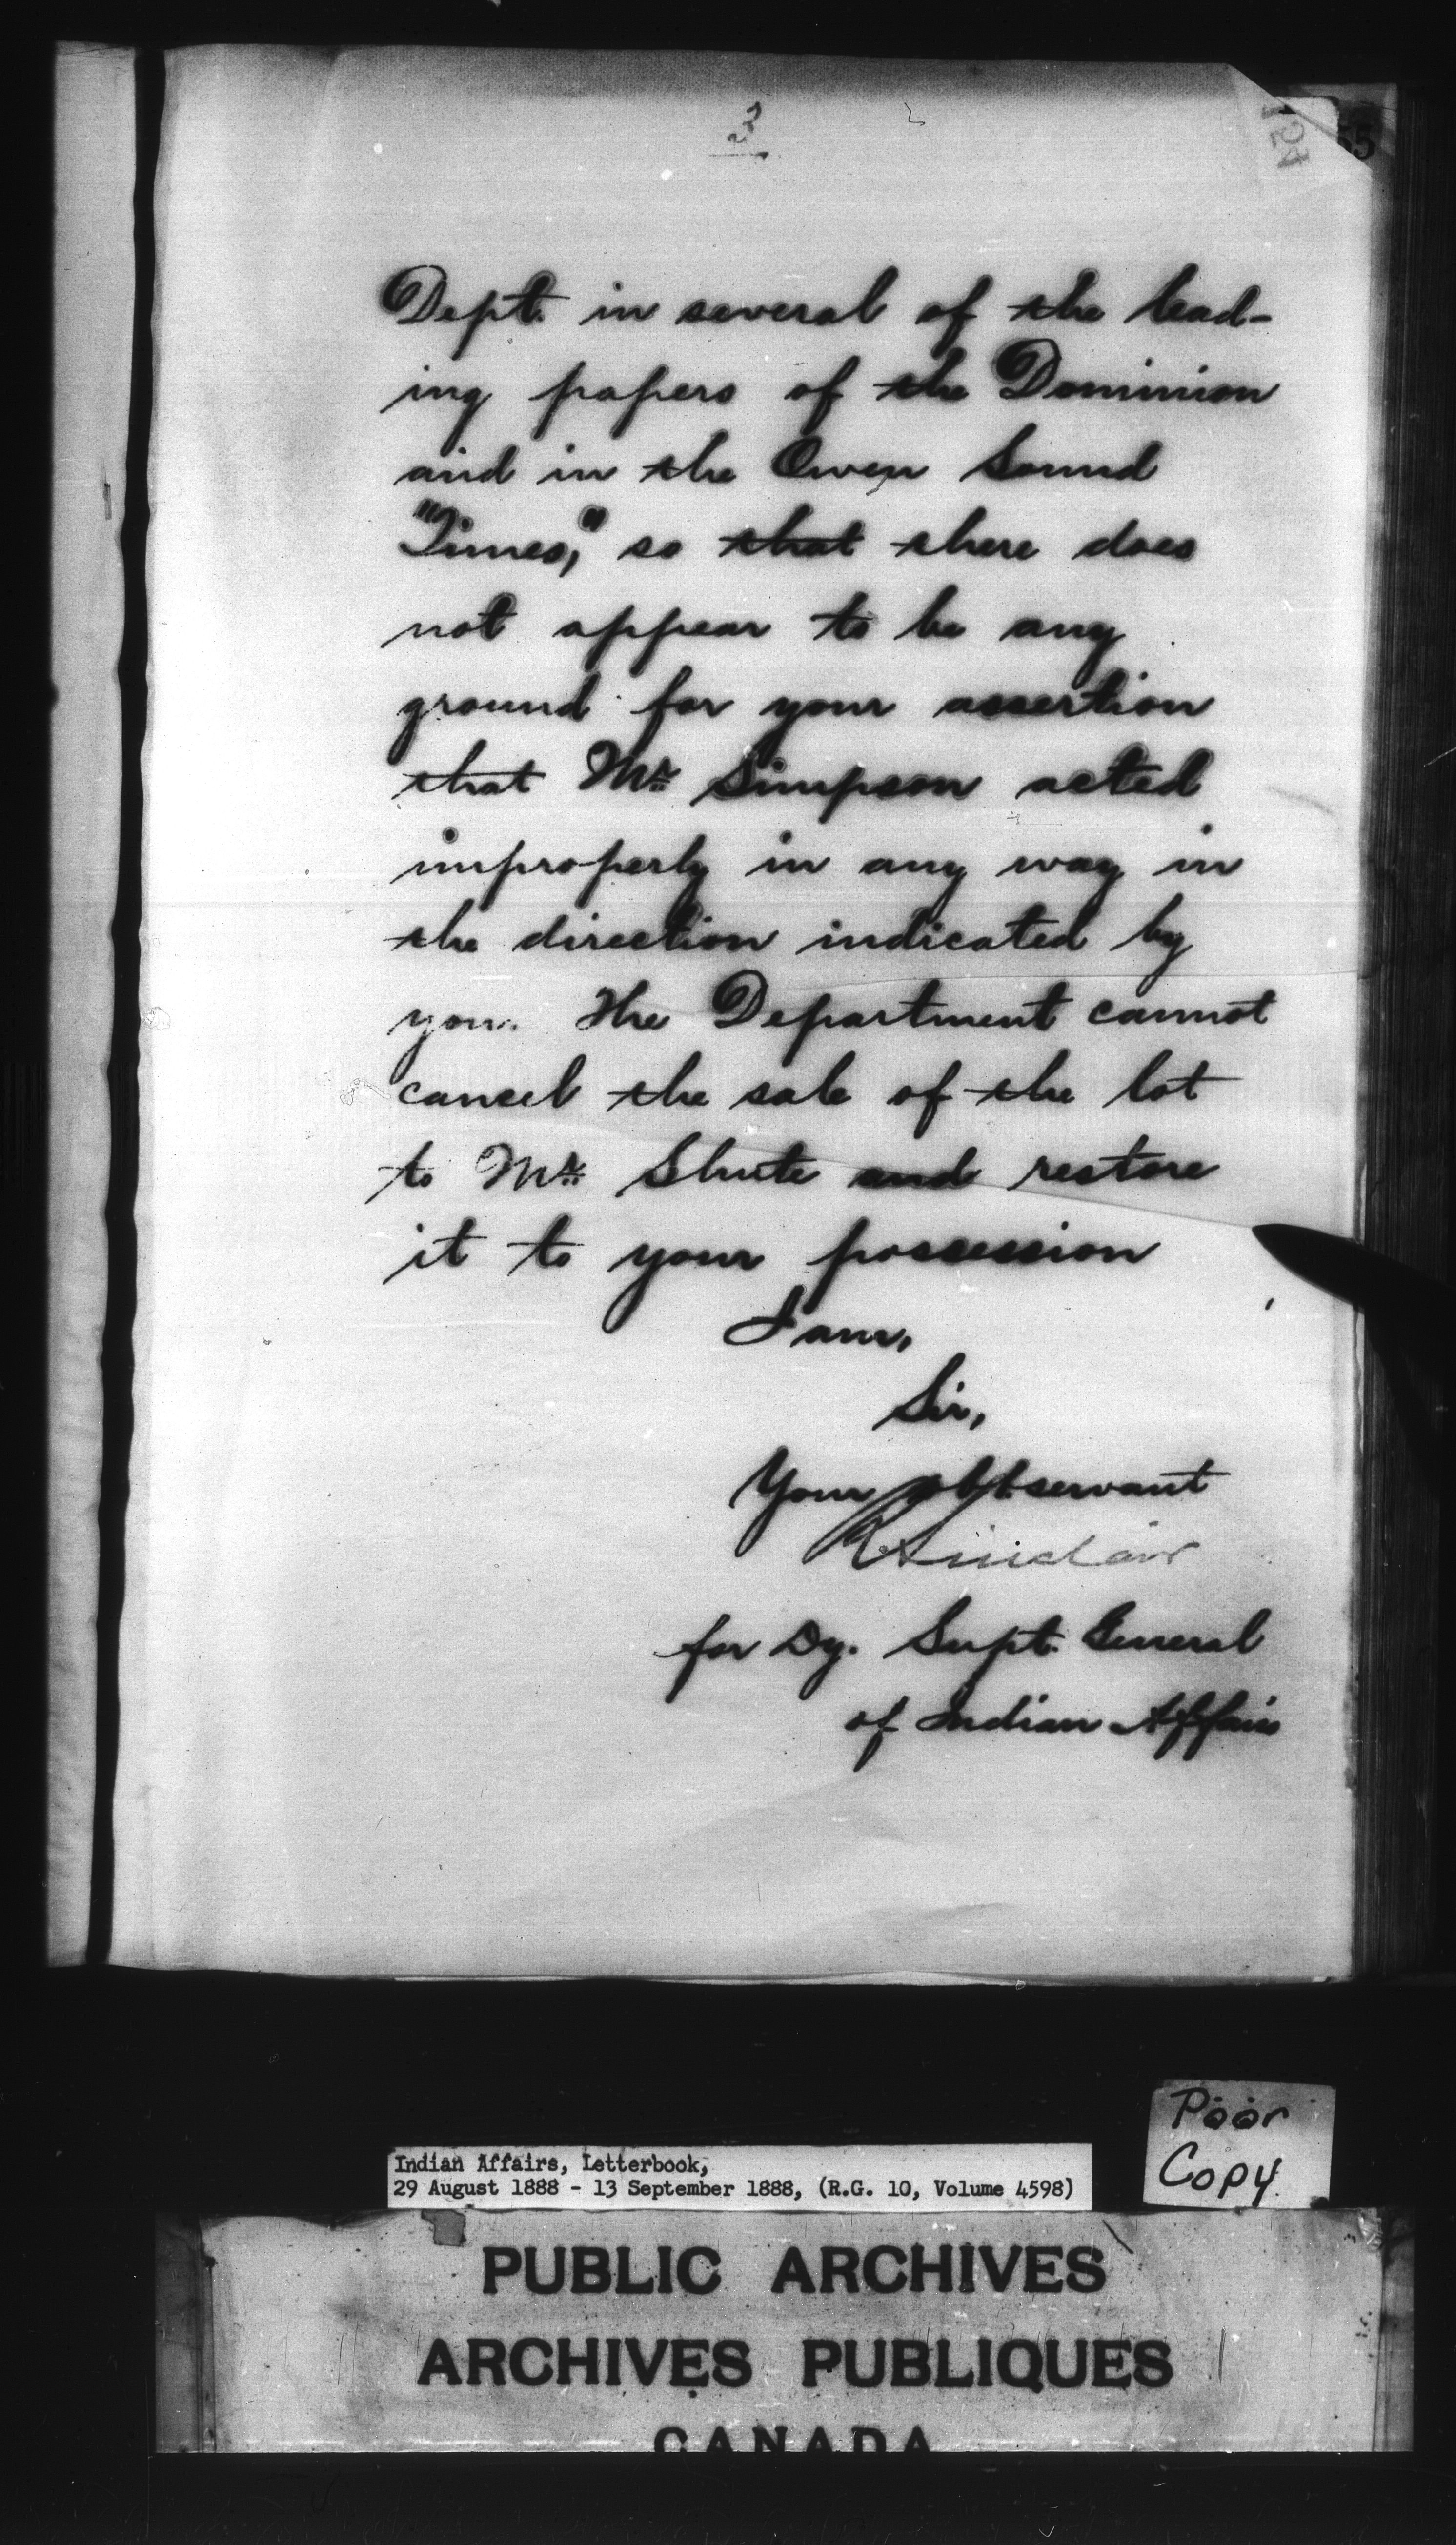 3
Dept. in several of the lead-
ing papers of the Dominion
and in the Owen Sound
"Times," so that there does
not appear to be any
ground for your assertion
that Mr Simpson acted
improperly in any way in
the direction indicated by
you. The Department cannot
cancel the sale of the lot
to Mr Shute and restore
it to your possession
I am,
Sir,
Your obt servant
R Sinclair
for Dy. Supt. General
of Indian Affairs
Poor
Copy.
Indian Affairs, Letterbook,
29 August 1888 - 13 September 1888, (R.G. 10, Volume 4598)
PUBLIC ARCHIVES
ARCHIVES PUBLIQUES
CANADA